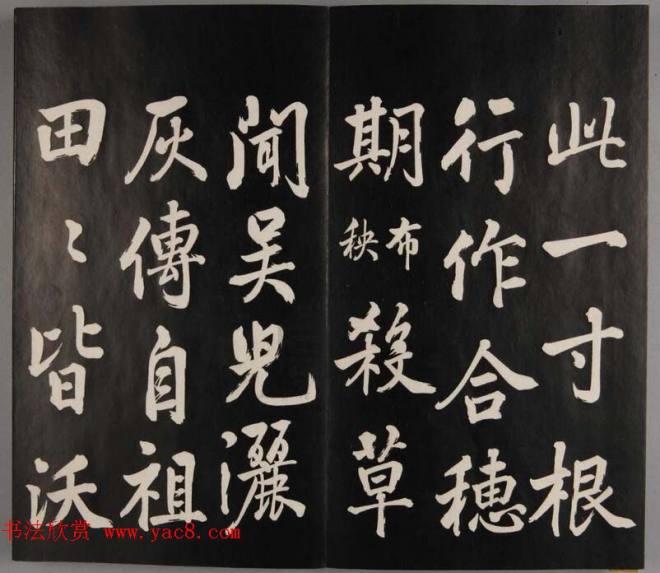 此一寸根
行作合穗
期布秧殺草
聞吴兒灑
灰傳自祖
田〻皆沃
书法欣赏 www.yac8.com